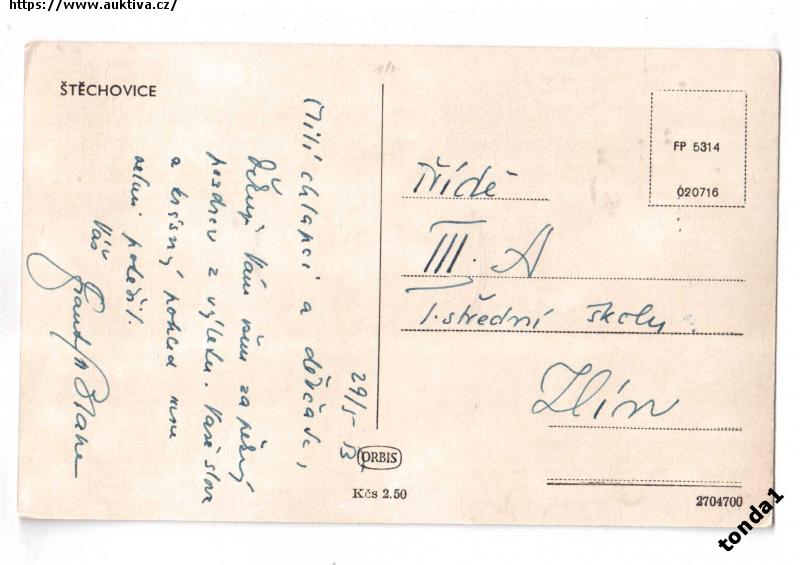 https://www.auktiva.cz/
ŠTĚCHOVICE
Milí chlapci a děvčata,
Děkuji Vám všem za pěkný
pozdrav z výletu. Vaše slova
a krásný pohled mne
velmi potěšil.
Váš
29/5 53
FP 5314
020716
Třídě
III. A
1. střední školy
Zlín
ORBIS
Kčs 2.50
2704700
tonda1